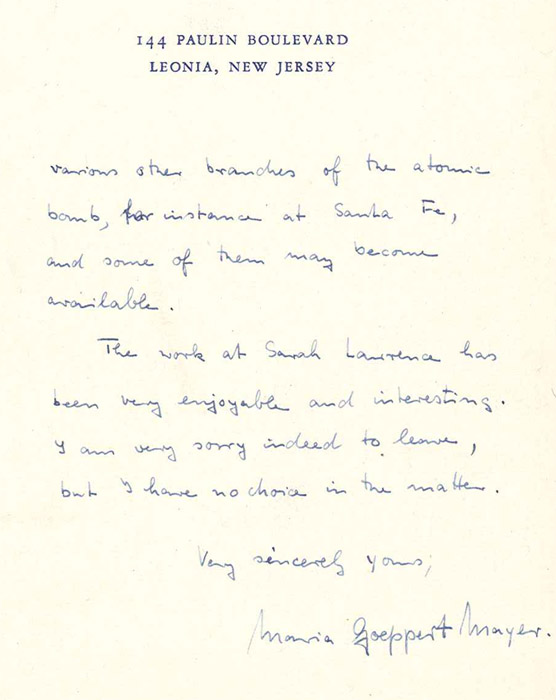 144 PAULIN BOULEVARD
LEONIA, NEW JERSEY
various other branches of the atomic
bomb, for instance at Santa Fe,
and some of them may become
available.
The work at Sarah Lawrence has
been very enjoyable and interesting.
I am very sorry indeed to leave,
but I have no choice in the matter.
Very sincerely yours,
Maria Goeppert Mayer.